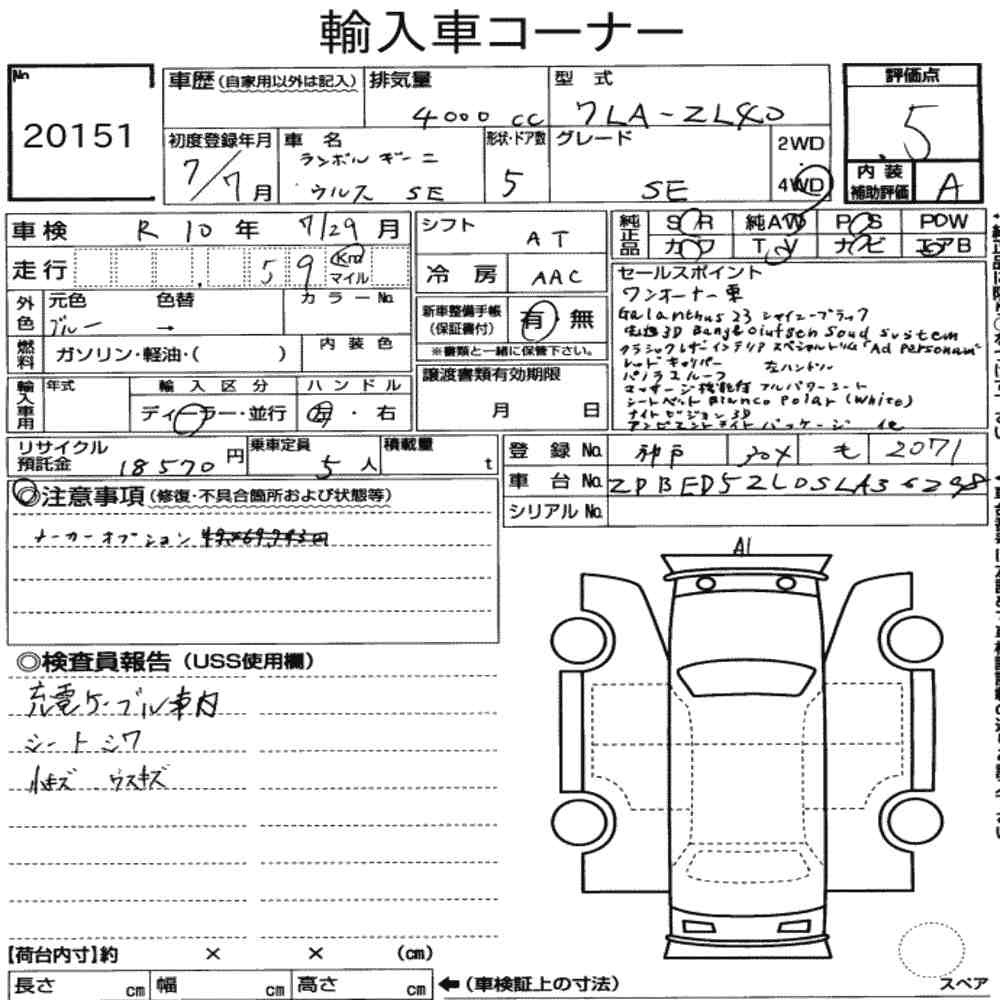 輸入車コーナー
No 20151
車歴(自家用以外は記入) 排気量 4000cc 型式 7LA-ZL4D
評価点 5
初度登録年月 7/7月 車名 ランボルギーニ ウルス SE 形状・ドア数 5 グレード SE 2WD 4WD
内装補助評価 A
車検 R 10年 7/29月
走行 59 Km マイル
外色 元色 ブルー 色替 → カラーNo.
燃料 ガソリン・軽油・( ) 内装色
輸入車用 年式 輸入区分 ディーラー・並行 ハンドル 左・右
リサイクル預託金 18570円 乗車定員 5人 積載量 t
シフト AT
冷房 AAC
新車整備手帳(保証書付) 有・無
※書類と一緒に保管下さい。
譲渡書類有効期限 月 日
純正品 SR 純AW PS PDW
カワ TV ナビ エアB
セールスポイント
ワンオーナー車
Galanthus 23 シャイニーブラック
3D Bang&Olufsen Soud System
クラシックレザーインテリア スペシャルトリム "Ad Personam"
レッドキャリパー 左ハンドル
パノラマルーフ
マッサージ機能付フルパワーシート
シートベルト Bianco Polar (White)
ナイトビジョン 3D
アンビエントライトパッケージ
登録No. 神戸 304 も 2071
車台No. ZPBED5ZL0SLA36298
シリアルNo.
◎注意事項(修復・不具合箇所および状態等)
メーカーオプション
A1
◎検査員報告(USS使用欄)
充電ケーブル車内
シートシワ
小キズ ウスキズ
【荷台内寸】約 × × (cm)
長さ cm 幅 cm 高さ cm ←(車検証上の寸法)
スペア